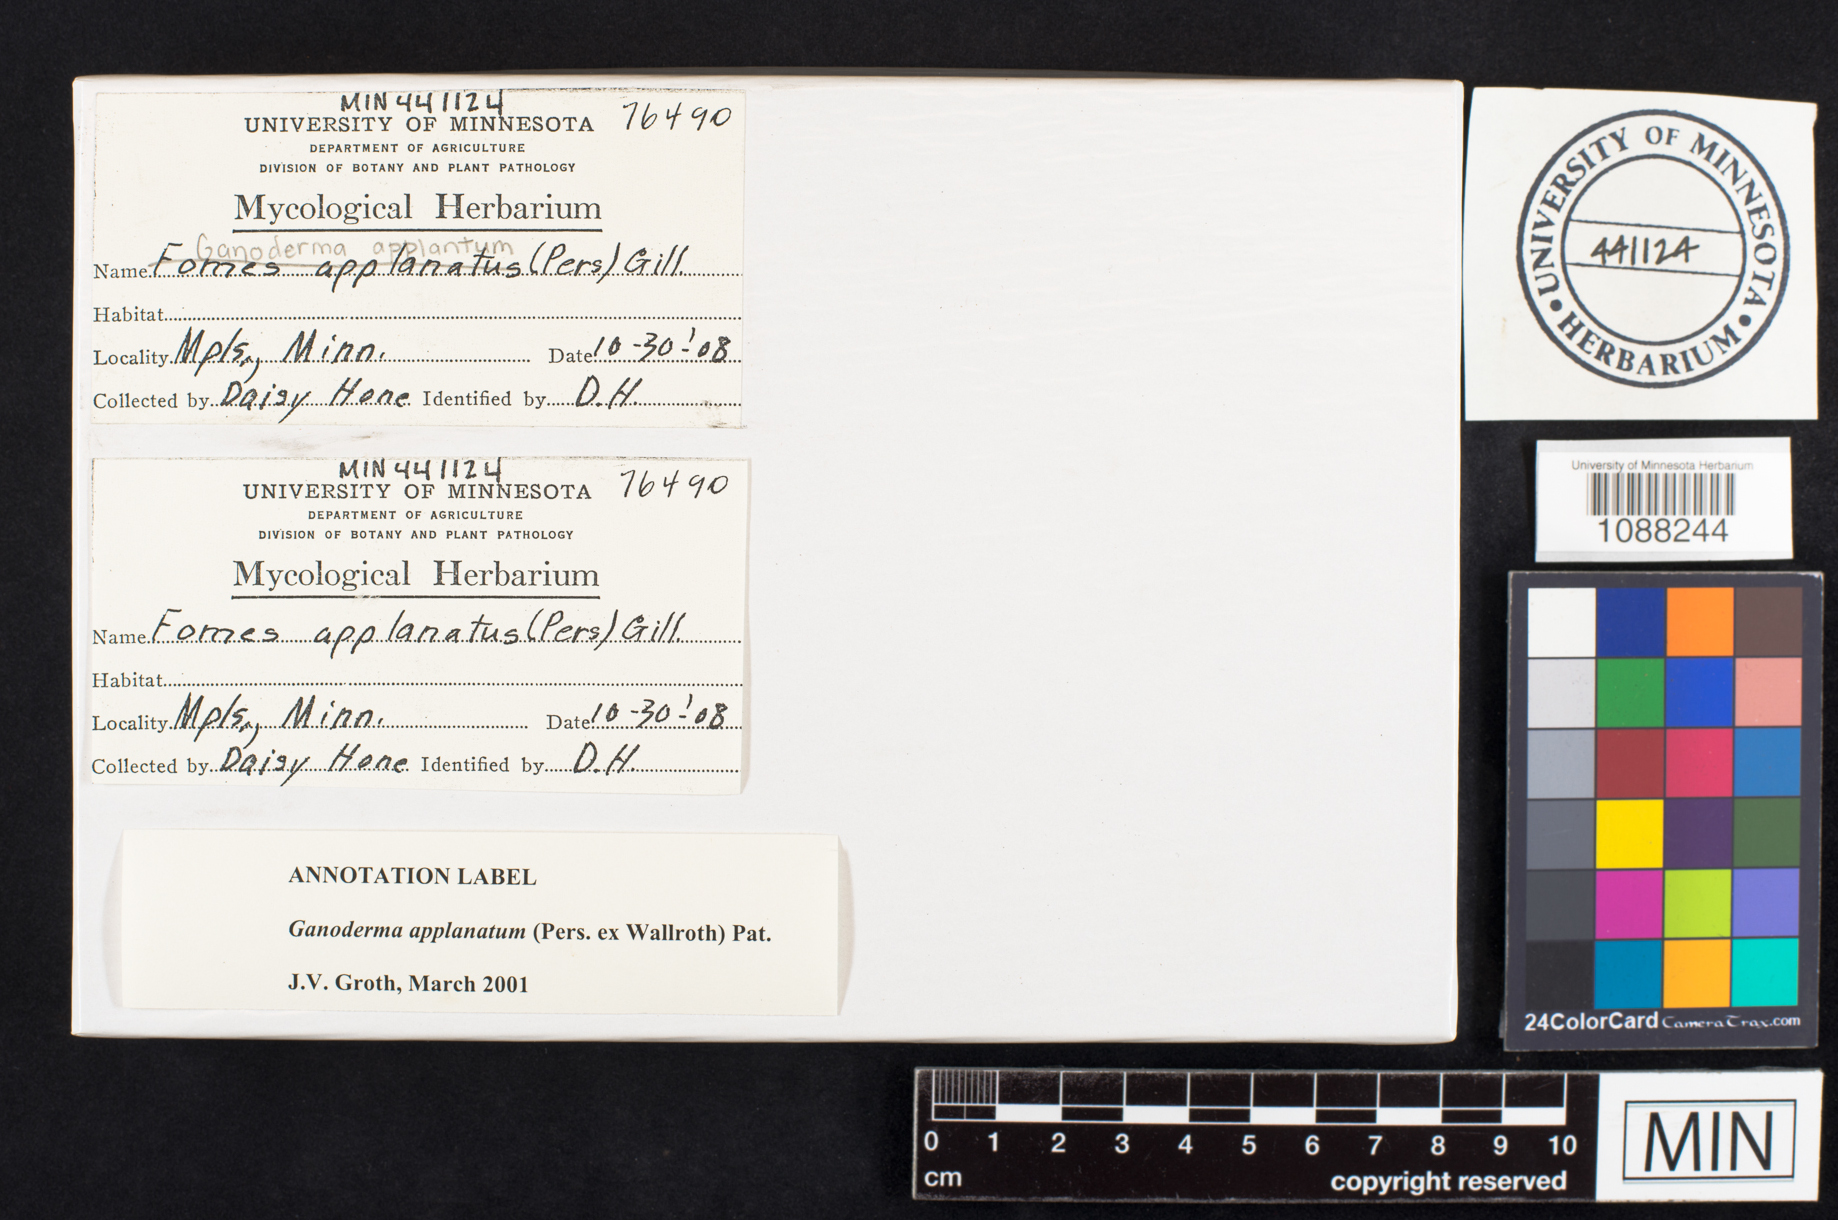 MIN 441124
76490
UNIVERSITY OF MINNESOTA
DEPARTMENT OF AGRICULTURE
DIVISION OF BOTANY AND PLANT PATHOLOGY
Mycological Herbarium
Ganoderma applantum
Name Fomes applanatus (Pers) Gill.
Habitat
Locality Mpls, Minn. Date 10-30-'08
Collected by Daisy Hone Identified by D.H.
MIN 441124
76490
UNIVERSITY OF MINNESOTA
DEPARTMENT OF AGRICULTURE
DIVISION OF BOTANY AND PLANT PATHOLOGY
Mycological Herbarium
Name Fomes applanatus (Pers) Gill.
Habitat
Locality Mpls, Minn. Date 10-30-'08
Collected by Daisy Hone Identified by D.H.
ANNOTATION LABEL
Ganoderma applanatum (Pers. ex Wallroth) Pat.
J.V. Groth, March 2001
UNIVERSITY OF MINNESOTA
• HERBARIUM •
441124
University of Minnesota Herbarium
1088244
24ColorCard CameraTrax.com
0 1 2 3 4 5 6 7 8 9 10
cm
copyright reserved
MIN